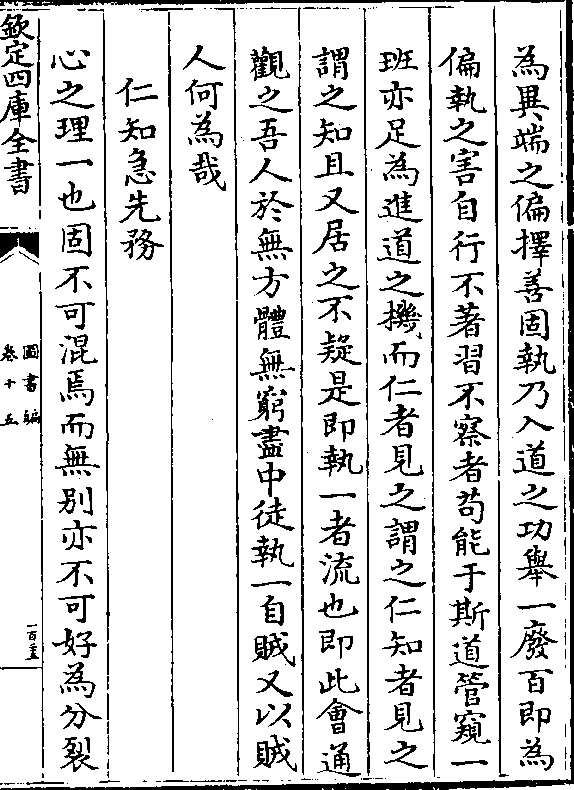 為異端之偏擇善固執乃入道之功舉一廢百即為
偏執之害自行不著習不察者苟能于斯道管窺一
班亦足為進道之機而仁者見之謂之仁知者見之
謂之知且又居之不疑是即執一者流也即此會通
觀之吾人於無方體無窮盡中徒執一自賊又以賊
人何為哉
仁知急先務
心之理一也固不可混焉而無别亦不可好為分裂
欽定四庫全書
圖書編
卷十五